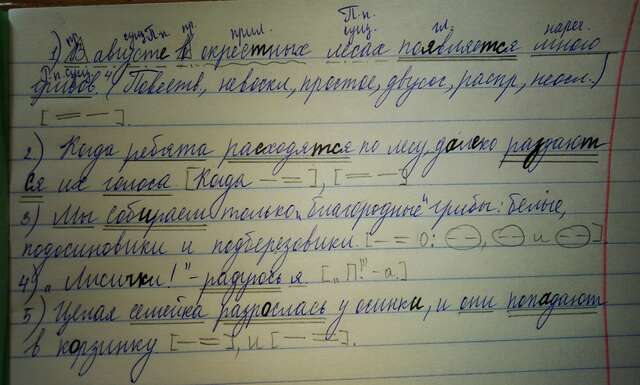 пр. сущ. П.п. пр. прил. П.п. сущ. гл. нареч.
1) В августе в окрестных лесах появляется много
Р.п. сущ.
грибов.⁴ (Повеств, невоскл, простое, двусос, распр, неосл.)
[= –].
2) Когда ребята расходятся по лесу, далеко раздают
ся их голоса [Когда – =], [= –]
3) Мы собираем только „благородные" грибы: белые,
подосиновики и подберезовики. [– = О: –, – и –].
4) „Лисички!" – радуюсь я. [„П!" – а.]
5) Целая семейка разрослась у осинки, и они попадают
в корзинку [– =], и [– =].